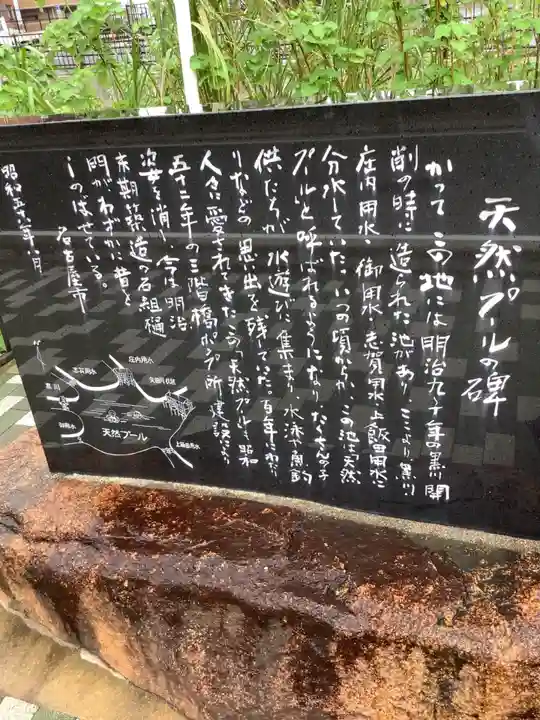 天然プールの碑
かつてこの地には明治九〜十年の黒川開
削の時に造られた池があり、ここより黒川
庄内用水、御用水、志賀用水、上飯田用水に
分水していた。いつの頃からか、この池は天然
プールと呼ばれるようになり、たくさんの子
供たちが水遊びに集まり、水泳や魚釣
りなどの思い出を残していた。百年にわたり
人々に愛されてきたこの「天然プール」も昭和
五十二年の三階橋ポンプ所建設により
姿を消し、今は明治
末期築造の石組樋
門がわずかに昔を
しのばせている。
名古屋市
昭和五十六年八月
庄内用水
志賀用水
矢田川伏越
黒川
御用水
天然プール
上飯田用水